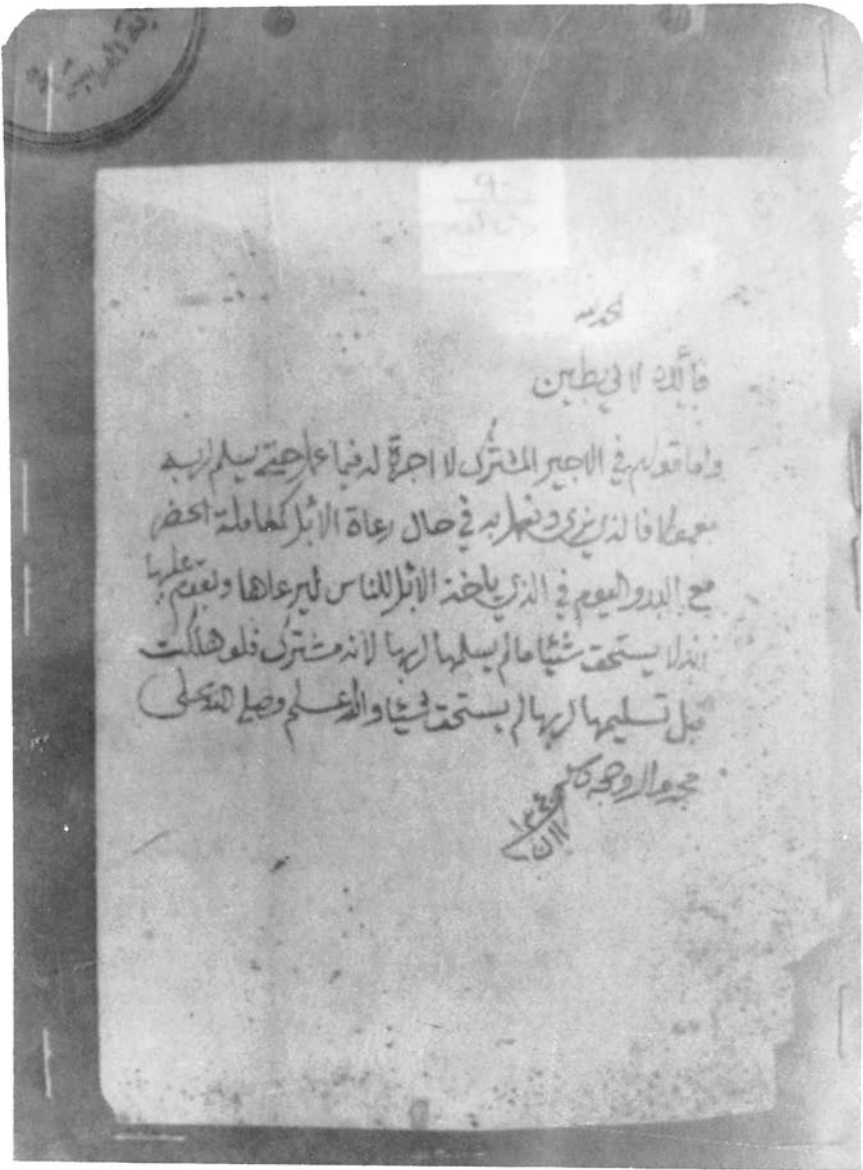 الحمد لله
فائدة لابي بطين
واما قولهم في الاجير المشترك لا اجرة له فيما عمل حتى يسلم لربه
معمولا فالذي نرى ونعمل به في حال رعاة الابل كمعاملة الحضر
مع البدو اليوم في الذي ياخذ الابل للناس ليرعاها ويقوم عليها
انه لا يستحق شيئا ما لم يسلمها لربها لانه مشترك فلو هلكت
قبل تسليمها لربها لم يستحق شيئا والله اعلم وصلى الله على
محمد واله وصحبه وسلم